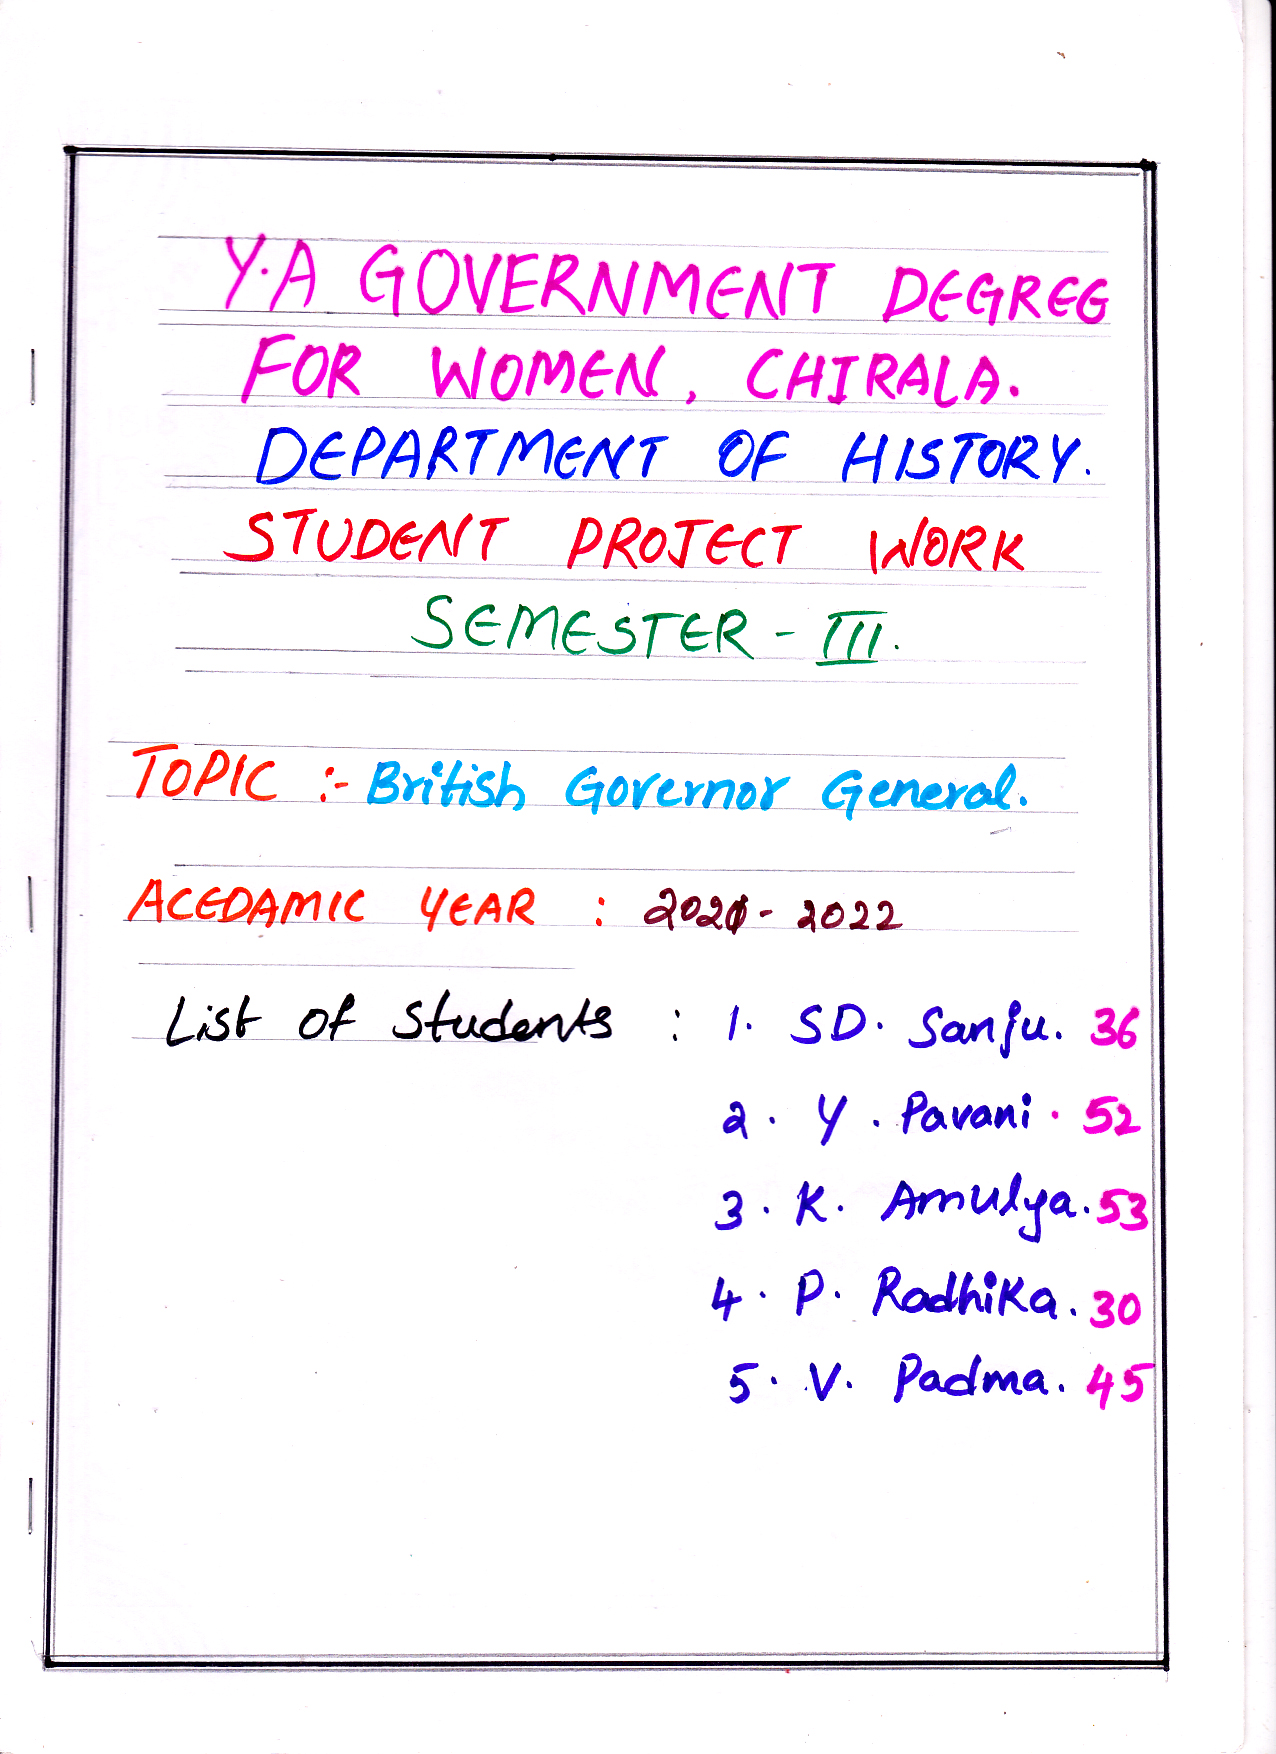 Y.A GOVERNMENT DEGREE
FOR WOMEN, CHIRALA.
DEPARTMENT OF HISTORY.
STUDENT PROJECT WORK
SEMESTER - III.
TOPIC :- British Governor General.
ACEDAMIC YEAR : 2021 - 2022
List of Students : 1. SD. Sanju. 36
2. Y. Pavani. 52
3. K. Amulya. 53
4. P. Radhika. 30
5. V. Padma. 45